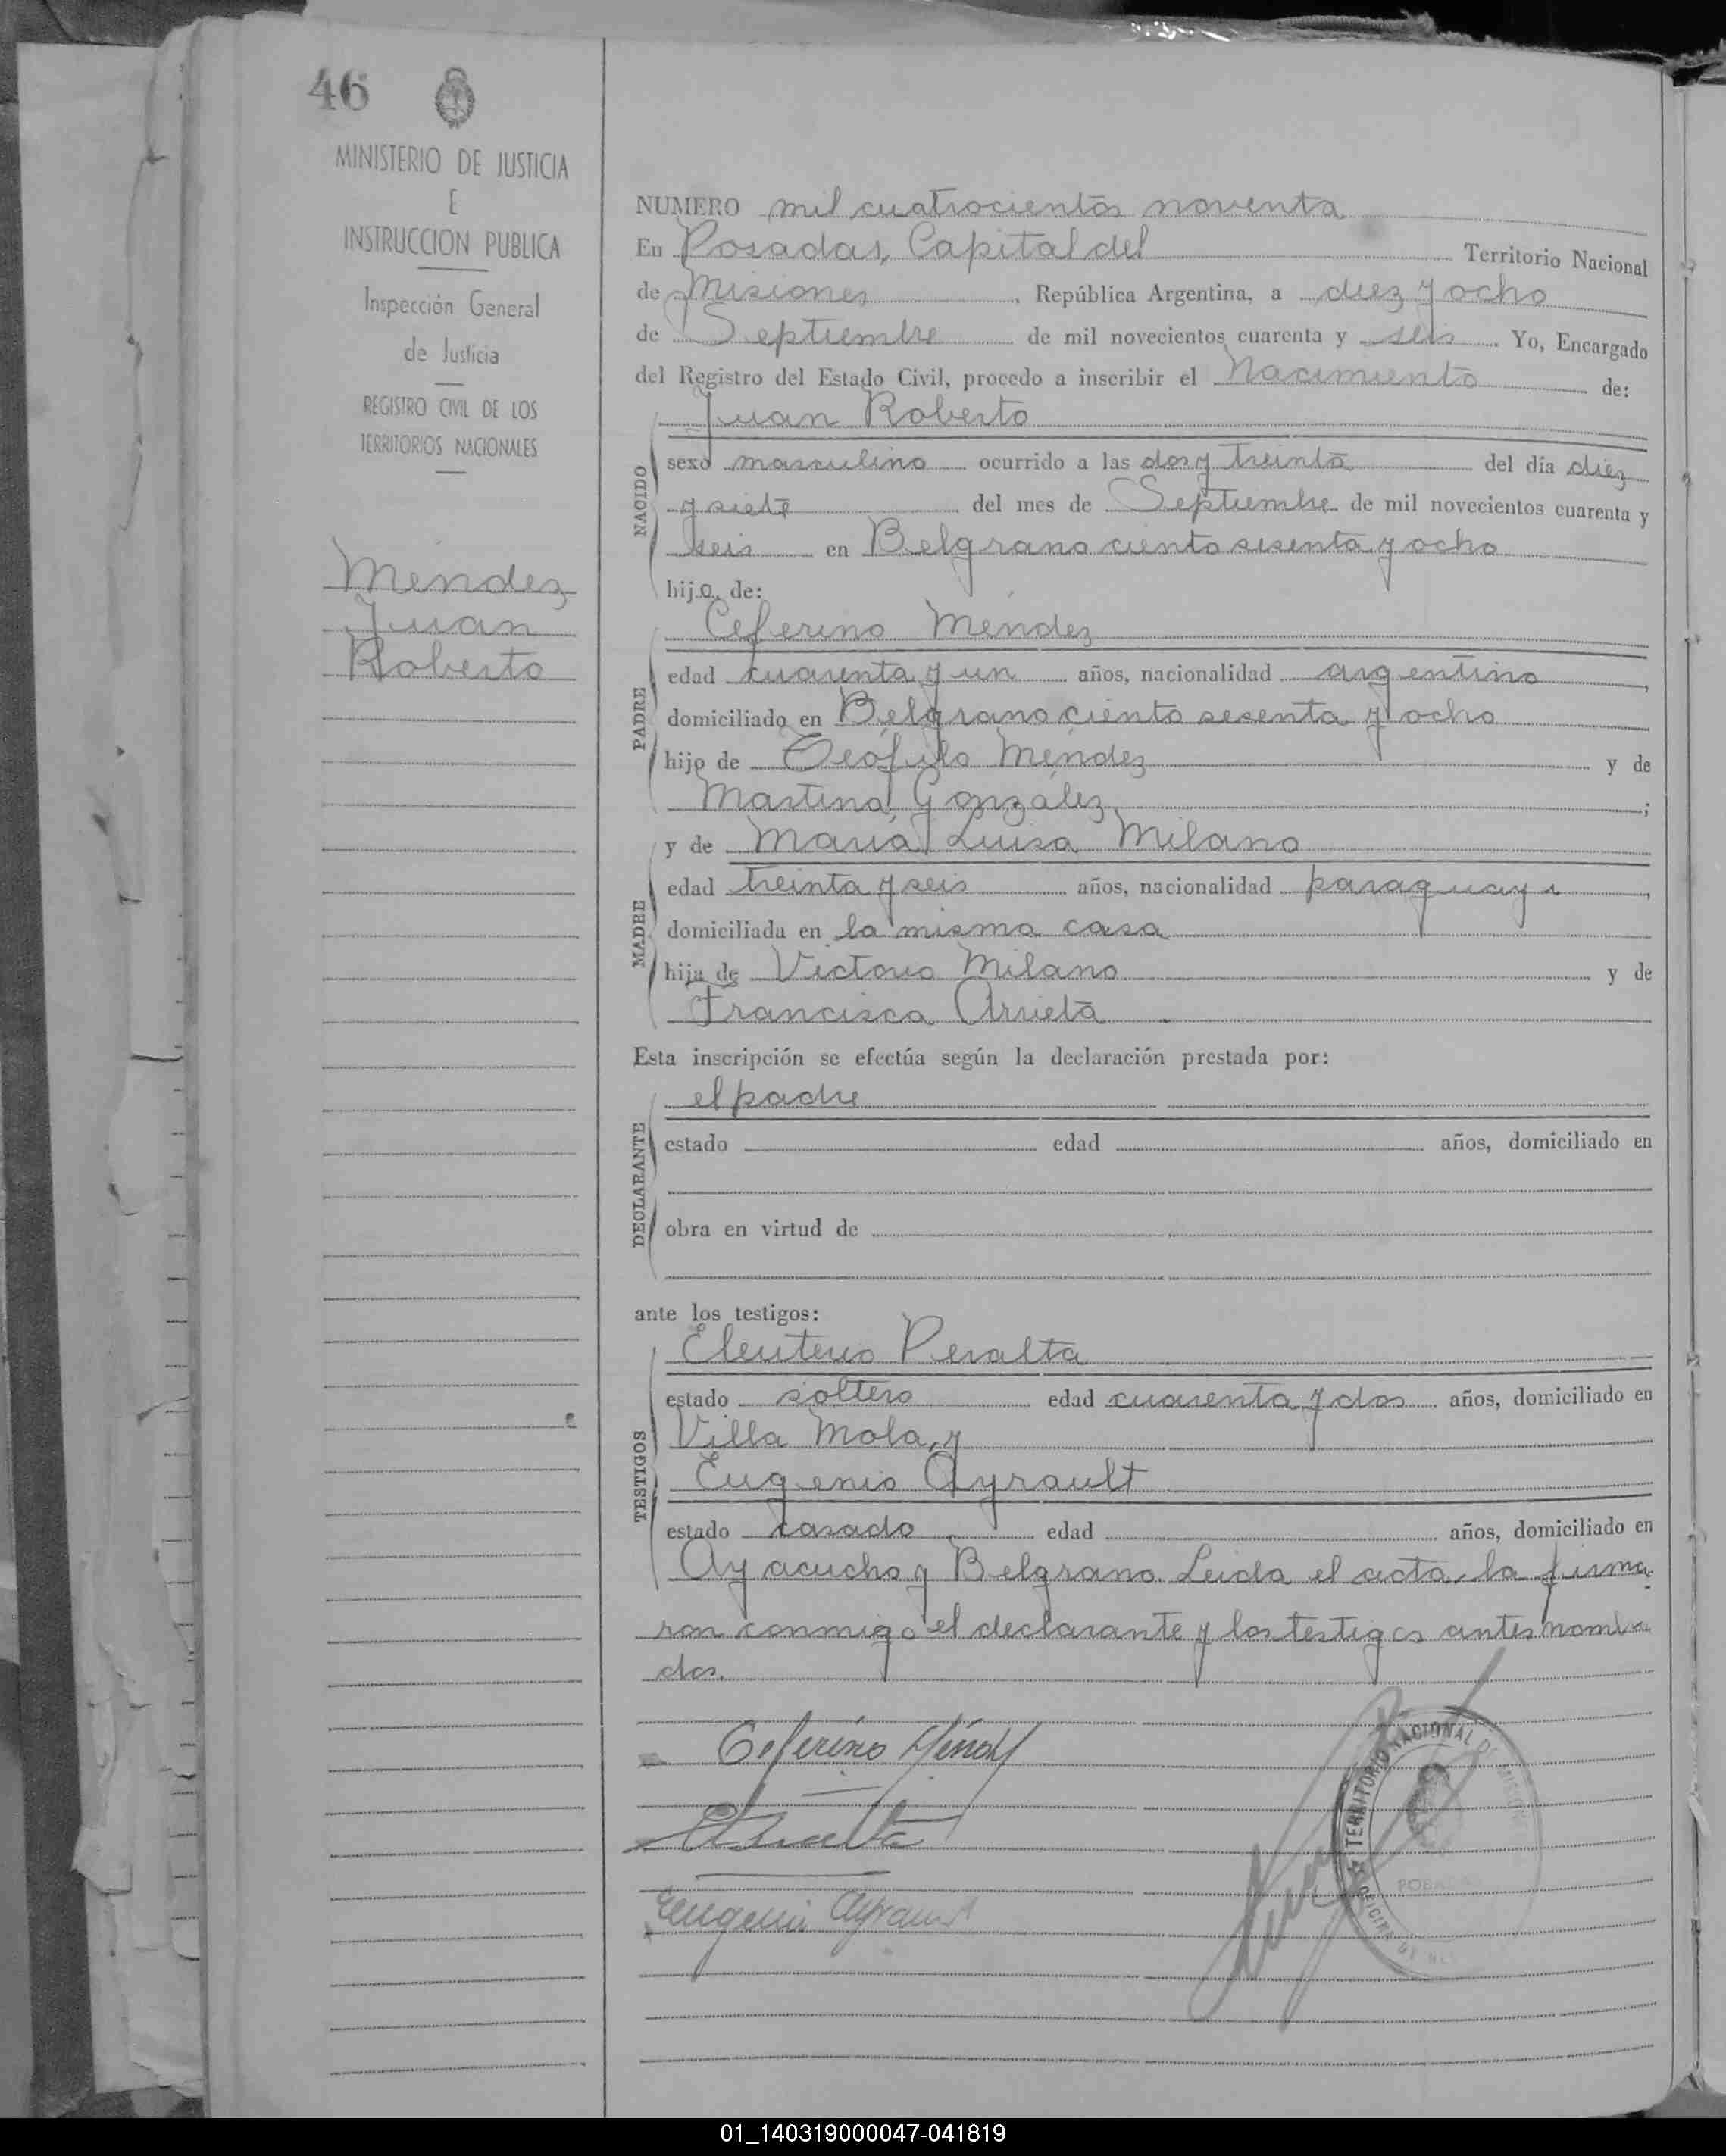 46
MINISTERIO DE JUSTICIA
E
INSTRUCCION PUBLICA
Inspección General
de Justicia
REGISTRO CIVIL DE LOS
TERRITORIOS NACIONALES
Méndez
Juan
Roberto
NUMERO mil cuatrocientos noventa
En Posadas, Capital del Territorio Nacional
de Misiones, República Argentina, a diez y ocho
de Septiembre de mil novecientos cuarenta y seis. Yo, Encargado
del Registro del Estado Civil, procedo a inscribir el Nacimiento de:
Juan Roberto
NACIDO
sexo masculino ocurrido a las dos y treinta del día diez
y siete del mes de Septiembre de mil novecientos cuarenta y
seis en Belgrano ciento sesenta y ocho
hijo de:
Ceferino Méndez
PADRE
edad cuarenta y un años, nacionalidad argentino,
domiciliado en Belgrano ciento sesenta y ocho
hijo de Teófilo Méndez y de
Martina González;
y de María Luisa Milano
MADRE
edad treinta y seis años, nacionalidad paraguaya,
domiciliada en la misma casa
hija de Victorio Milano y de
Francisca Arrieta
Esta inscripción se efectúa según la declaración prestada por:
el padre
DECLARANTE
estado edad años, domiciliado en
obra en virtud de
ante los testigos:
Eleuterio Peralta
TESTIGOS
estado soltero edad cuarenta y dos años, domiciliado en
Villa Mola, y
Eugenio Ayrault
estado casado edad años, domiciliado en
Ayacucho y Belgrano. Leida el acta, la firma
ron conmigo el declarante y los testigos antes nombra
dos.
Ceferino Méndez
Eugenio Ayrault
TERRITORIO NACIONAL DE MISIONES
OFICINA DE
POSADAS
01_140319000047-041819